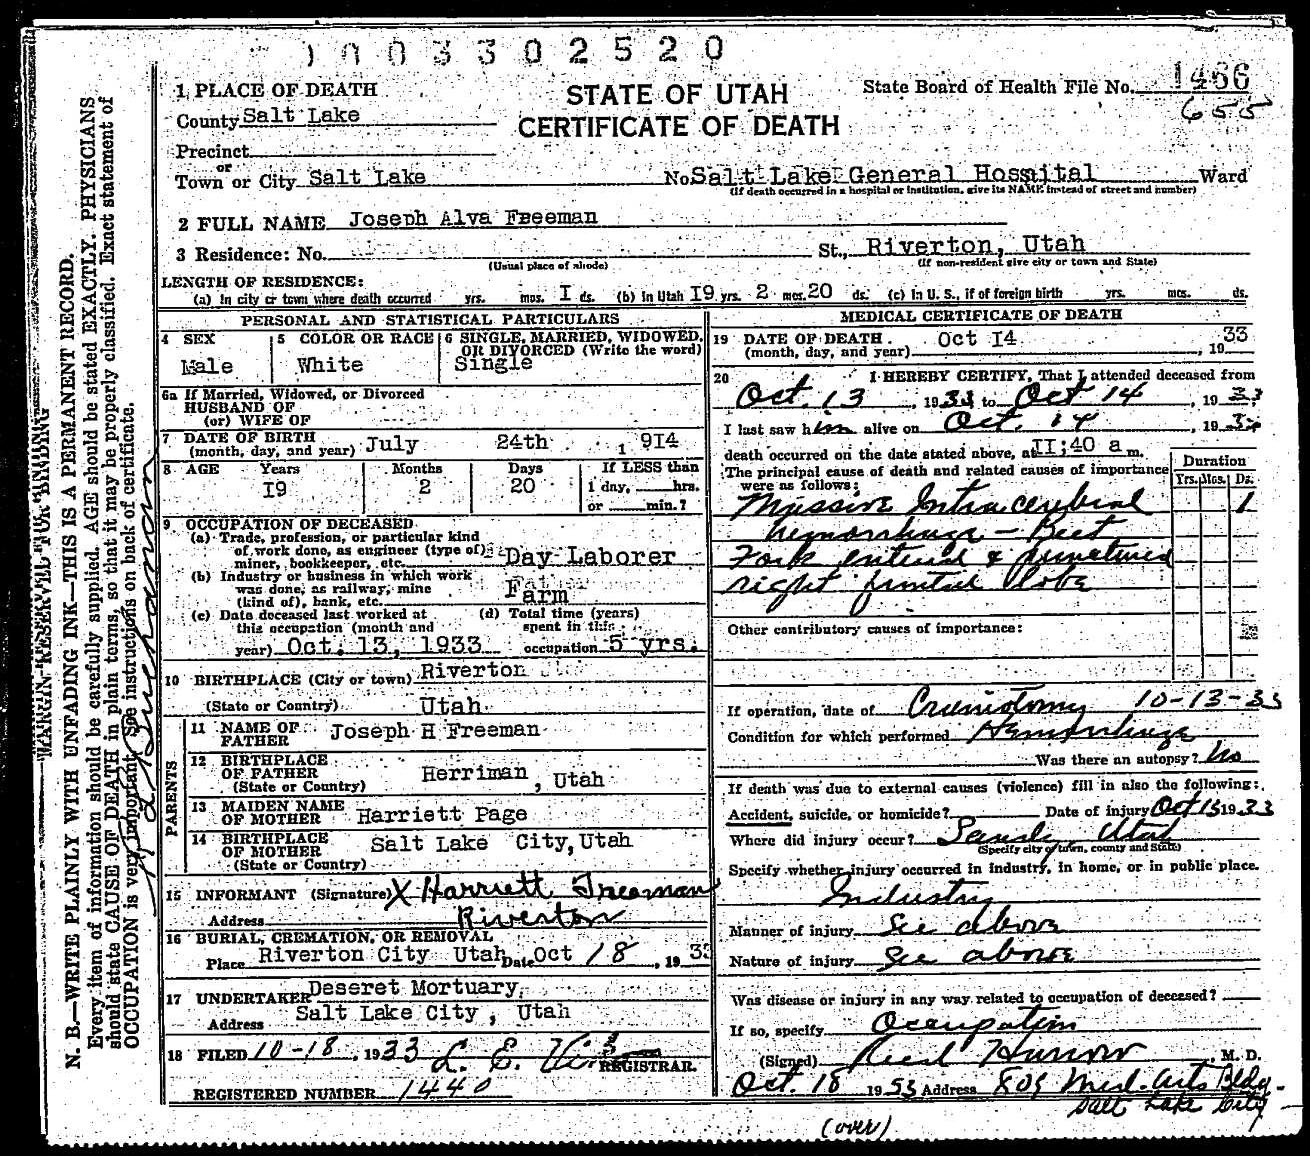 1003302520
1 PLACE OF DEATH
STATE OF UTAH
CERTIFICATE OF DEATH
State Board of Health File No. 1466
655
County Salt Lake
Precinct
or
Town or City Salt Lake No. Salt Lake General Hospital Ward
(If death occurred in a hospital or institution, give its NAME instead of street and number)
2 FULL NAME Joseph Alva Freeman
3 Residence: No. St., Riverton, Utah
(Usual place of abode) (If non-resident give city or town and State)
LENGTH OF RESIDENCE:
(a) In city or town where death occurred yrs. mos. I ds. (b) In Utah I9 yrs. 2 mos. 20 ds. (c) In U. S., if of foreign birth yrs. mos. ds.
PERSONAL AND STATISTICAL PARTICULARS
4 SEX Male
5 COLOR OR RACE White
6 SINGLE, MARRIED, WIDOWED, OR DIVORCED (Write the word) Single
6a If Married, Widowed, or Divorced
HUSBAND OF
(or) WIFE OF
7 DATE OF BIRTH
(month, day, and year) July 24th 1 914
8 AGE Years Months Days If LESS than
I9 2 20 1 day, hrs.
or min.?
9 OCCUPATION OF DECEASED
(a) Trade, profession, or particular kind
of work done, as engineer (type of)
miner, bookkeeper, etc. Day Laborer
(b) Industry or business in which work
was done, as railway, mine
(kind of), bank, etc. Farm
(c) Date deceased last worked at (d) Total time (years)
this occupation (month and spent in this
year) Oct. 13, 1933 occupation 5 yrs.
10 BIRTHPLACE (City or town) Riverton
(State or Country) Utah
PARENTS
11 NAME OF
FATHER Joseph H Freeman
12 BIRTHPLACE
OF FATHER Herriman, Utah
(State or Country)
13 MAIDEN NAME
OF MOTHER Harriett Page
14 BIRTHPLACE
OF MOTHER Salt Lake City, Utah
(State or Country)
15 INFORMANT (Signature) X Harriett Freeman
Address Riverton
16 BURIAL, CREMATION, OR REMOVAL
Place Riverton City Utah Date Oct 18, 19 33
17 UNDERTAKER Deseret Mortuary
Address Salt Lake City, Utah
18 FILED 10-18, 1933 L. E.
REGISTRAR.
REGISTERED NUMBER 1440
MEDICAL CERTIFICATE OF DEATH
19 DATE OF DEATH
(month, day, and year) Oct I4, 19 33
20 I HEREBY CERTIFY, That I attended deceased from
Oct. 13, 1933 to Oct 14, 19 33
I last saw him alive on Oct. 14, 19 33
death occurred on the date stated above, at II;40 a m.
The principal cause of death and related causes of importance
were as follows:
Duration
Yrs. Mos. Ds.
Massive Intracerebral 1
hemorrhage - Beet
Fork entered & punctured
right frontal lobe
Other contributory causes of importance:
If operation, date of Craniotomy 10-13-33
Condition for which performed Hemorrhage
Was there an autopsy? No
If death was due to external causes (violence) fill in also the following:
Accident, suicide, or homicide? Date of injury Oct 13 1933
Where did injury occur? Sandy Utah
(Specify city or town, county and State)
Specify whether injury occurred in industry, in home, or in public place.
Industry
Manner of injury See above
Nature of injury See above
Was disease or injury in any way related to occupation of deceased?
If so, specify Occupation
(Signed) Reed Harrow, M. D.
Oct. 18 1933 Address 809 Med. Arts Bldg.
Salt Lake City
(over)
MARGIN RESERVED FOR BINDING
N. B.—WRITE PLAINLY WITH UNFADING INK—THIS IS A PERMANENT RECORD.
Every item of information should be carefully supplied. AGE should be stated EXACTLY. PHYSICIANS
should state CAUSE OF DEATH in plain terms, so that it may be properly classified. Exact statement of
OCCUPATION is very important. See instructions on back of certificate.